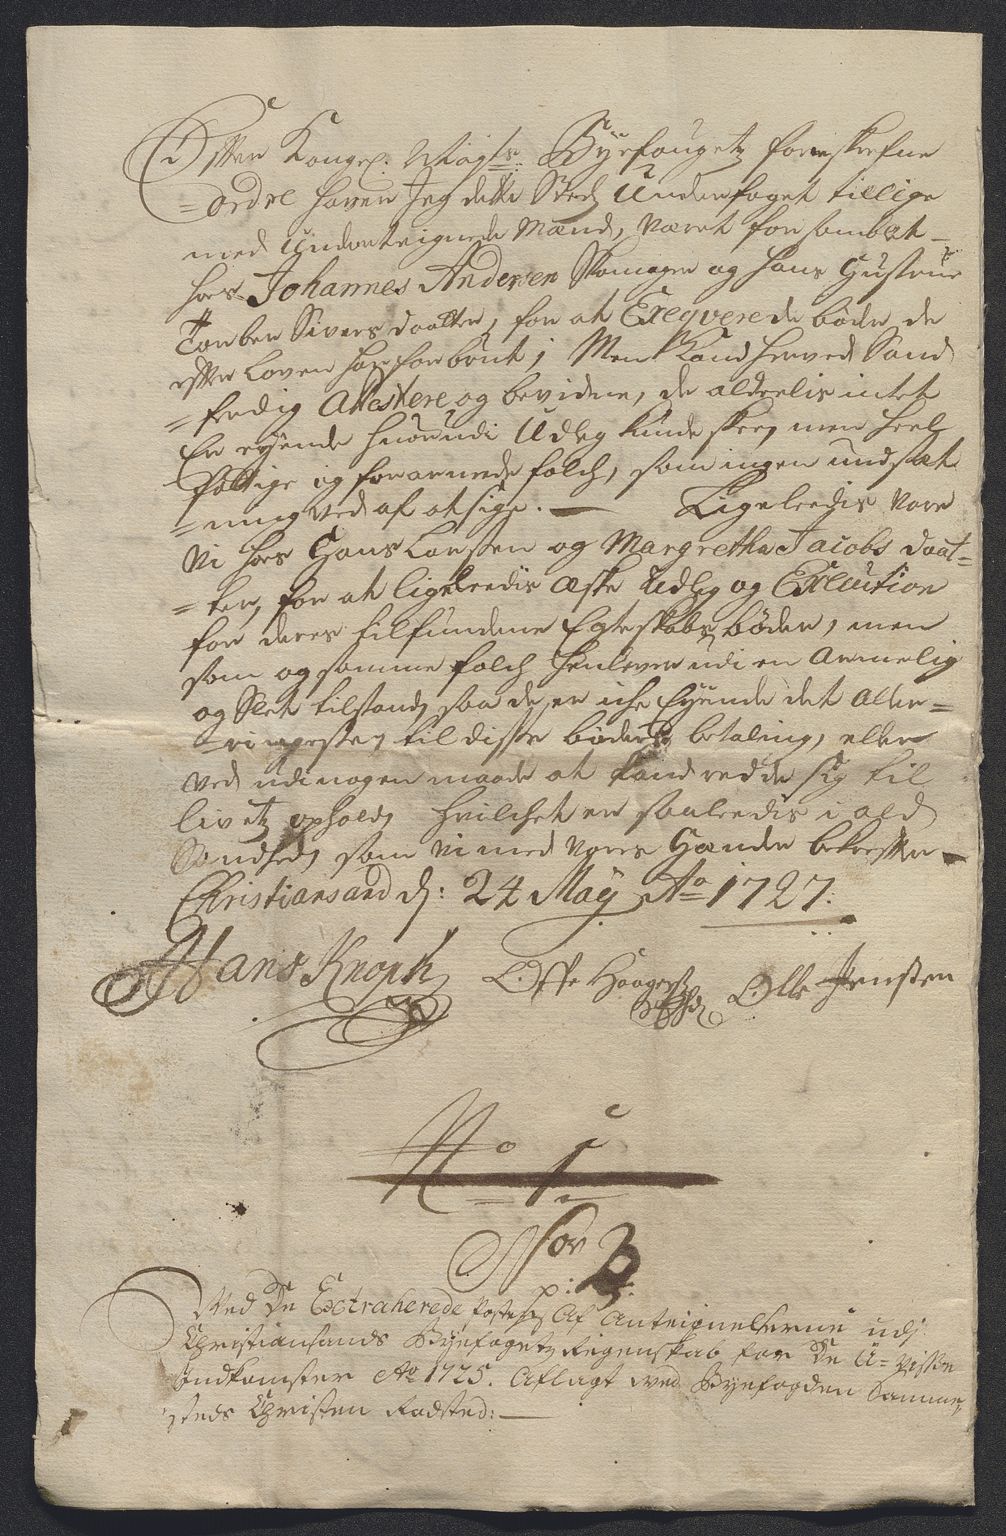 Efter Kongel. Mayts. Byefougetz foreskrefne
ordre hafver Jeg dette Sted Underfoget tillige
med Underteignede Mænd, været forsamblet
hos Johannes Andersen Skomager og hans Hustrue
Torber Sivers daatter, for at Exeqvere de bøder de
efter Loven har forbrut; Men Kand herved Sand-
ferdig Attestere og bevidne, de aldeelis intet
er eyende hvorudi Udleg kunde skee, men heel
fattige og forarmede folch, som ingen undsæt-
ning ved af at sige. Ligeleedis vare
Vi hos Hans Larssen og Margretha Jacobs daat-
ter, for at ligeleedis æske Udleg og Execution
for deres tilfundene Egteskabs bøder, men
som og samme folch henlever udi en armelig
og Slet tilstand, saa de er iche Eyende det aller-
ringeste til disse bøders betaling, eller
ved udi nogen maade at kand redde sig til
livetz ophold, hvilchet er saaleedis i ald
Sandhed, som vi med vores Hænder bekrefter
Christiansand d: 24 May Ao 1727.
Hans Knoph Offe Olle Jensen
No 1
Nor
p:
Ved De Extraherede Poster Af Anteignelserne udj
Christiansands Byefogetz Regenskab for De U-visse
Indkomster Ao 1725. Aflagt ved Byefogden Samme-
steds Christen Radsted: